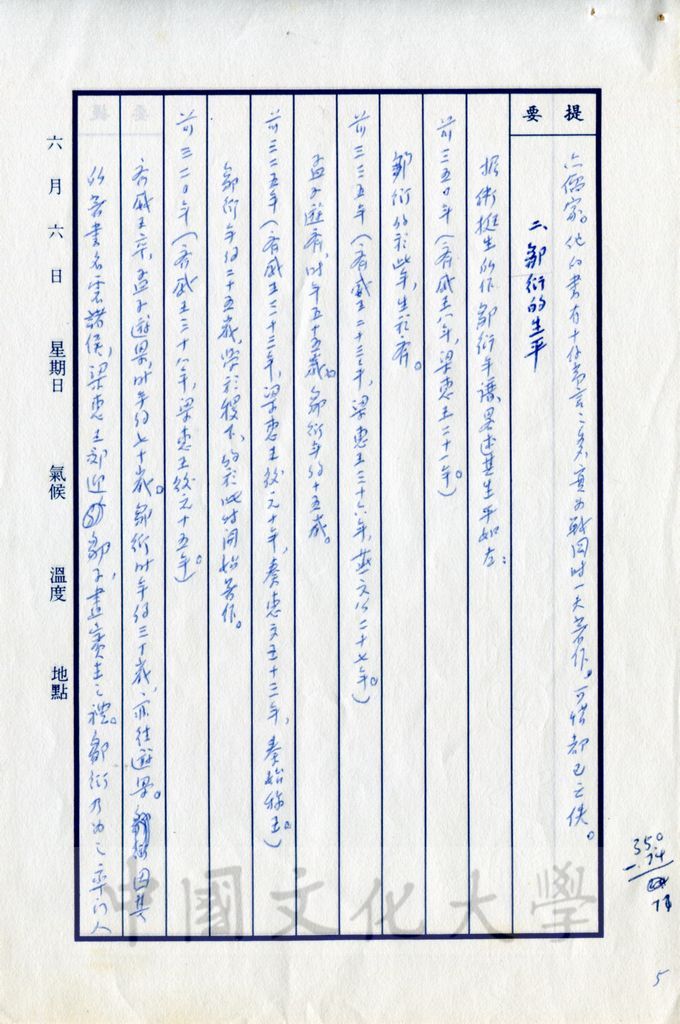 提要
六儒家。他的書有十餘萬言之多,實為戰國時一大著作。可惜都已亡佚。
二、鄒衍的生平
據衛挺生的作鄒衍年譜,畧述其生平如左:
前三五〇年(齊威王八年,梁惠王二十一年。)
鄒衍約於此年,生於齊。
前三三五年(齊威王二十三年,梁惠王三十六年,燕文公二十七年。)
孟子遊齊,時年五十五歲。鄒衍年約十五歲。
前三二五年(齊威王三十三年,梁惠王後元十年,秦惠文王十三年,秦始稱王。)
鄒衍年約二十五歲,學於稷下,約於此時開始著作。
前三二〇年(齊威王三十八年,梁惠王後元十五年。)
齊威王卒,孟子遊梁,時年約七十歲。鄒衍時年約三十歲,亦往遊梁。因其
的著書名震諸侯,梁惠王郊迎鄒子,盡賓主之禮。鄒衍乃為之率門人
六月六日 星期日 氣候 溫度 地點
中國文化大學
350
5